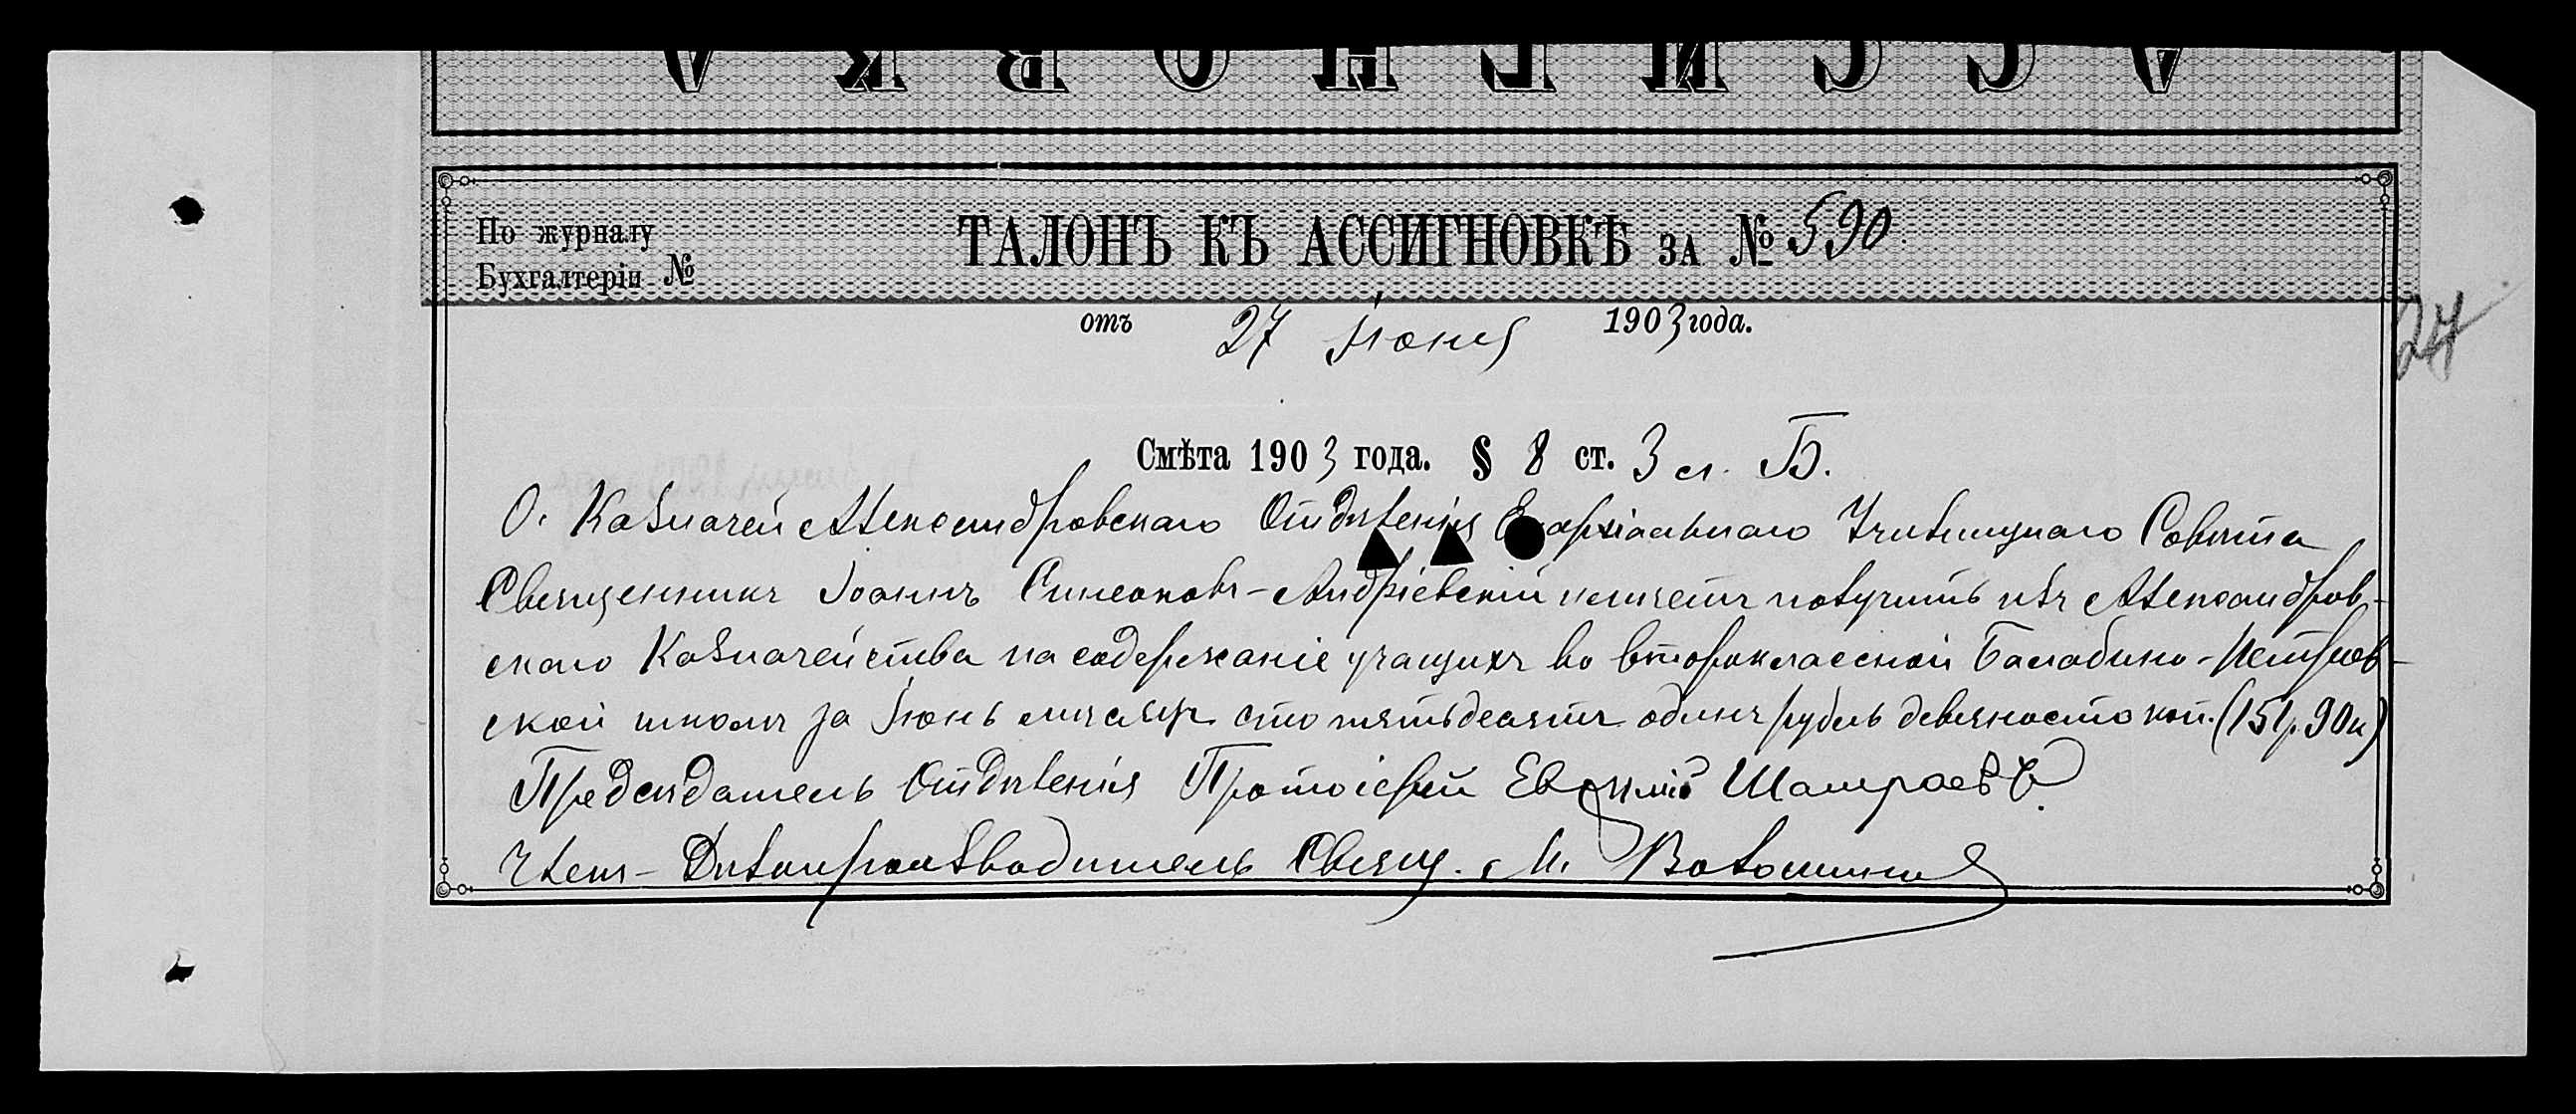 АССИГНОВКА
По журналу
Бухгалтеріи №
ТАЛОНЪ КЪ АССИГНОВКѢ ЗА № 590.
отъ 27 Іюня 1903 года.
27
Смѣта 1903 года. § 8 ст. 3 л. Б.
О. Казначей Александровскаго Отдѣленія Епархіальнаго Училищнаго Совѣта
Священникъ Іоаннъ Симеоновъ-Андріевскій имѣетъ получить изъ Александров-
скаго Казначейства на содержаніе учащихъ во второклассной Балабино-Петров-
ской школѣ за Іюнь мѣсяцъ сто пятьдесятъ одинъ рубль девяносто коп. (151 р. 90 к)
Предсѣдатель Отдѣленія Протоіерей Евѳимій Шамраевъ.
Членъ-Дѣлопроизводитель Свящ. М. Волошинов